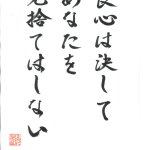 良心は決して
あなたを
見捨てはしない